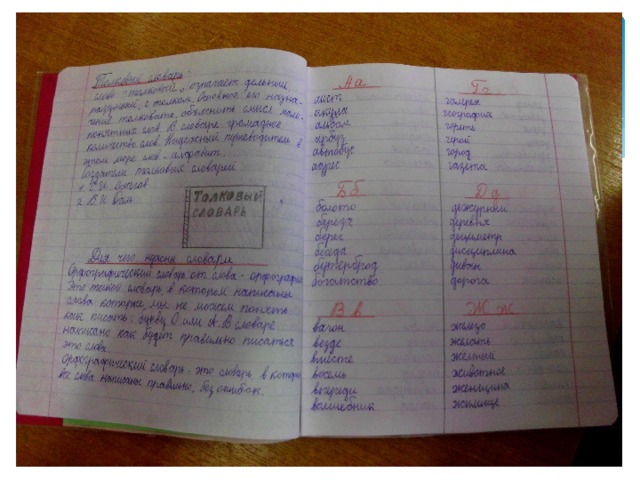 Толковый словарь.
Слово "толковый", означает дельный,
разумный, с толком. Основное его назна-
чение толковать, объяснить смысл мало-
понятных слов. В словаре громадное
количество слов. Надежный путеводитель в
этом море слов - алфавит.
Создатели толковых словарей
1. С.И. Ожегов
2. В.И. Даль
ТОЛКОВЫЙ
СЛОВАРЬ
Для чего нужны словари
Орфографический словарь от слова - орфография
Это такой словарь в котором написаны
слова которые мы не можем понять
как писать: букву О или А. В словаре
написано как будет правильно писаться
это слово.
Орфографический словарь - это словарь в котором
все слова написаны правильно, без ошибок.
Аа
акула
альбом
арбуз
автобус
адрес
Бб
болото
берёза
берег
беседа
бутерброд
богатство
В в
вагон
везде
вместе
восемь
впереди
волшебник
Гг
галерея
география
гореть
герой
город
газета
Д д
дежурный
деревня
дециметр
дисциплина
диван
дорога
Ж ж
железо
желать
жёлтый
животное
женщина
жилище